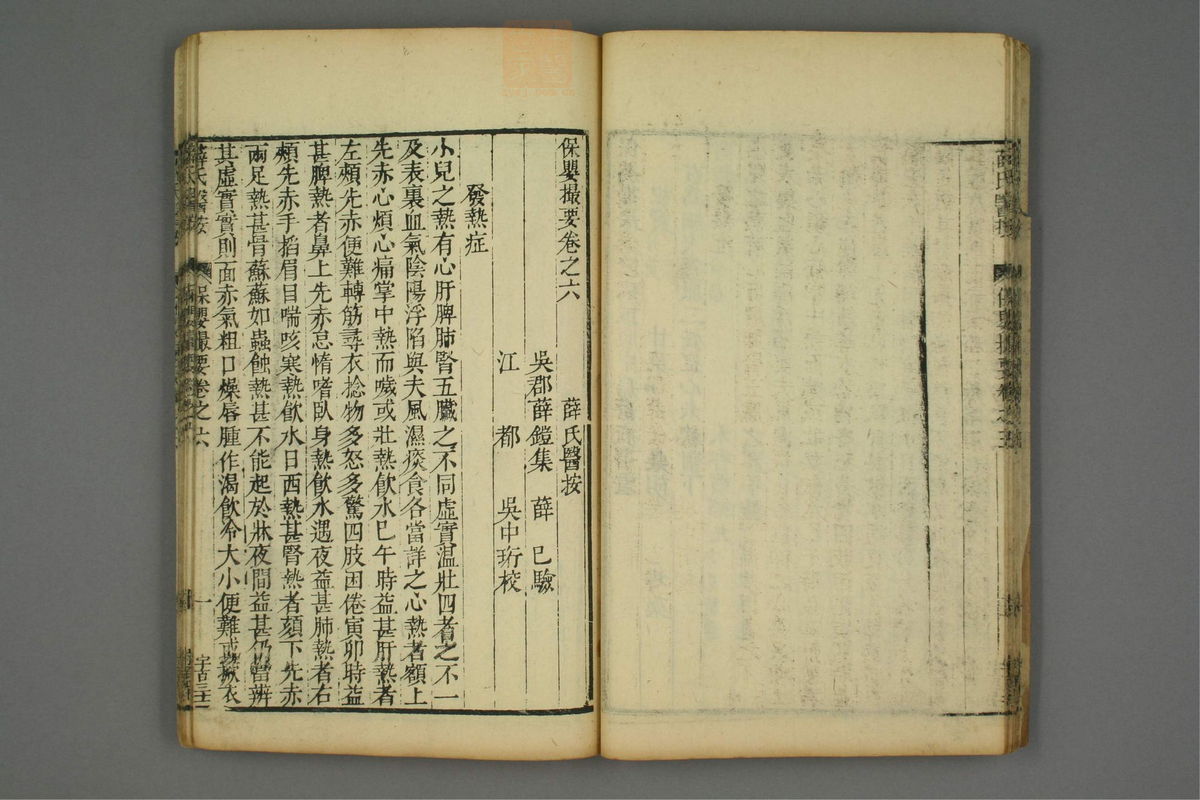 保嬰撮要卷之五
保嬰撮要卷之六
薛氏醫按
吳郡薛鎧集 薛 已驗
江 都 吳中珩校
發熱症
小兒之熱有心肝脾肺腎五臟之不同虛實温壯四者之不一
及表裏血氣陰陽浮陷與夫風濕痰食各當詳之心熱者額上
先赤心煩心痛掌中熱而噦或壯熱飮水巳午時益甚肝熱者
左頰先赤便難轉筋尋衣捻物多怒多驚四肢困倦寅卯時益
甚脾熱者鼻上先赤怠惰嗜臥身熱飮水遇夜益甚肺熱者右
頰先赤手掐眉目喘咳寒熱飮水日西熱甚腎熱者頦下先赤
兩足熱甚骨蘇蘇如蟲蝕熱甚不能起於牀夜間益甚仍當辨
其虛實實則面赤氣粗口燥唇腫作渴飮冷大小便難或掀衣
薛氏醫按 保嬰撮要卷之六 一